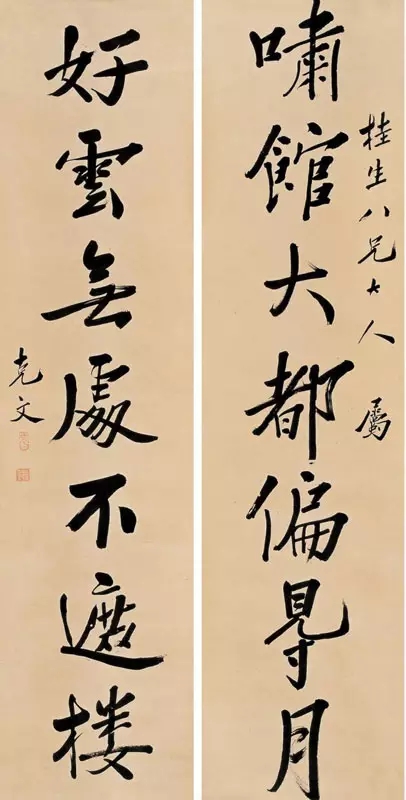 桂生八兄大人屬
嘯館大都偏䙷月
好雲無處不遮楼
克文